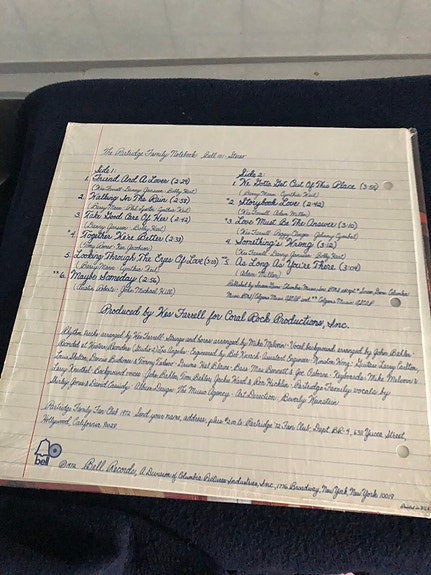 The Partridge Family Notebook Bell 1111 Stereo
Side 1:
1. Friend And A Lover (2:29)
(Wes Farrell-Danny Janssen-Bobby Hart)
2. Walking In The Rain (2:58)
(Barry Mann-Phil Spector-Cynthia Weil)
3. Take Good Care Of Her (2:42)
(Danny Janssen-Bobby Hart)
*4. Together We're Better (2:38)
(Tony Romeo-Ken Jacobson)
5. Looking Through The Eyes Of Love (3:03)
(Barry Mann-Cynthia Weil)
**6. Maybe Someday (2:56)
(Austin Roberts-John Michael Hill)
Side 2:
1. We Gotta Get Out Of This Place (3:55)
(Barry Mann-Cynthia Weil)
*2. Storybook Love (2:42)
(Wes Farrell-Adam Miller)
*3. Love Must Be The Answer (3:10)
(Wes Farrell-Peggy Clinger-Johnny Cymbal)
4. Something's Wrong (3:12)
(Wes Farrell-Danny Janssen-Bobby Hart)
*5. As Long As You're There (3:04)
(Adam Miller)
Produced by Wes Farrell for Coral Rock Productions, Inc.
Rhythm tracks arranged by Wes Farrell-Strings and horns arranged by Mike Melvoin-Vocal background arranged by John Bahler
Recorded at Western Recorders (Studio 2) Los Angeles-Engineered by Bob Kovach-Assistant Engineer-Winston Wong-Guitars: Larry Carlton,
Louie Shelton, Dennis Budimir & Tommy Tedesco-Drums: Hal Blaine-Bass: Max Bennett & Joe Osborne-Keyboards: Mike Melvoin &
Larry Knechtel-Background voices: John Bahler, Tom Bahler, Jackie Ward & Ron Hicklin-Partridge Family vocals by:
Shirley Jones & David Cassidy-Album Design-The Music Agency-Art Direction-Beverly Weinstein
Partridge Family Fan Club 1972 Send your name, address, plus $2.00 to: Partridge '72 Fan Club-Dept. BR-9, 6311 Yucca Street,
Hollywood, California 90028
bell
©1972 Bell Records, A Division of Columbia Pictures Industries, Inc., 1776 Broadway, New York, New York 10019
Printed in U.S.A.